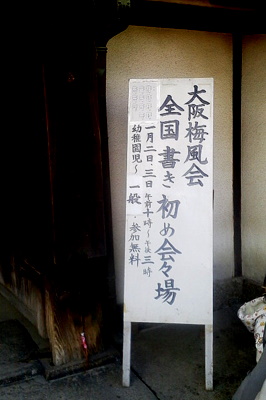 大阪梅風会
全国書き初め会々場
一月二日・三日 午前十時～午後三時
幼稚園児～一般・参加無料